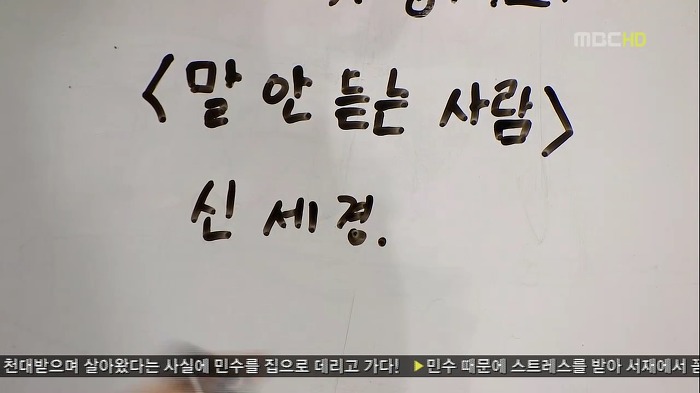 MBC HD
<말 안 듣는 사람>
신세경.
천대받으며 살아왔다는 사실에 민수를 집으로 데리고 가다! ▶민수 때문에 스트레스를 받아 서재에서